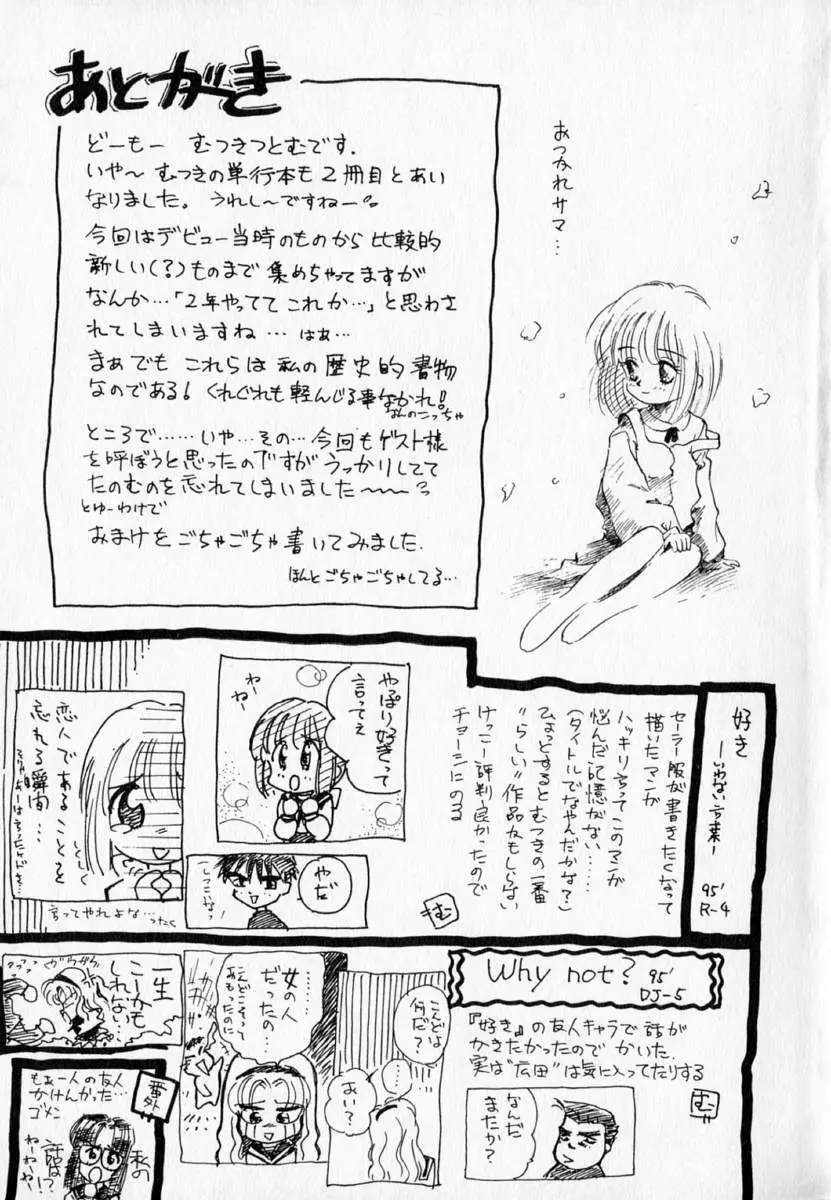 あとがき
どーもー むつきつとむです.
いや〜 むつきの単行本も2冊目とあい
なりました。うれし〜ですねー
今回はデビュー当時のものから比較的
新しい(?)ものまで集めちゃってますが
なんか…「2年やってて これか…」と思わさ
れてしまいますね… はぁ…
まぁでも これらは私の歴史的書物
なのである! くれぐれも軽んじる事なかれ!
なんのこっちゃ
ところで……いや…その…今回もゲスト様
を呼ぼうと思ったのですがうっかりしてて
たのむのを忘れてしまいました〜〜
とゆーわけで
おまけをごちゃごちゃ書いてみました.
ほんとごちゃごちゃしてる…
おつかれサマ…
好き
ーいけない言葉ー
95'
R-4
セーラー服が書きたくなって
描いたマンガ
ハッキリ言ってこのマンガ
悩んだ記憶がない……
(タイトルでなやんだかな?)
ひょっとするとむつきの一番
"らしい"作品かもしらない
けっこー評判良かったので
チョーシにのる
む
やっぱり好きって
言ってぇ
わー
ねー
やだ
しつこいなっ
恋人であることを
忘れる瞬間…
しくしく
言ってやれよな… ったく
Why not?
95'
DJ-5
『好き』の友人キャラで話が
かきたかったので かいた.
実は"広田"は気に入ってたりする
む
なんだ
またか?
こんどは
何だ?
あい?
……女の人
だったの…
こんどこそって
おもったのに
一生
こーかも
しれない…
番外
もぉ一人の友人
かけんかった…
ゴメン
私の
話は!?
ねーねーや!